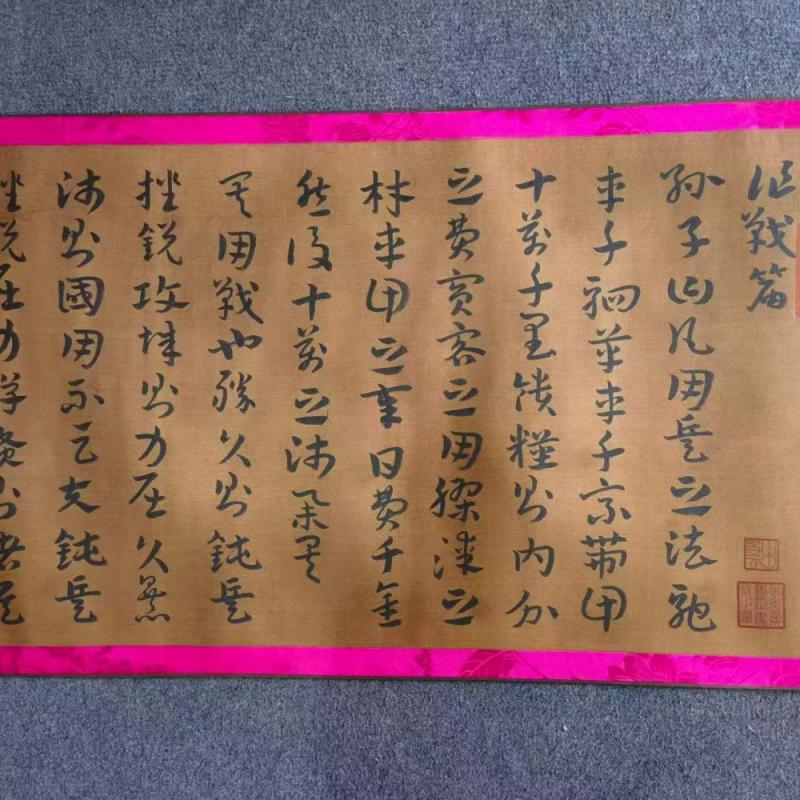 作戰篇
孫子曰凡用兵之法馳
車千駟革車千乘帶甲
十萬千里饋糧則內外
之費賓客之用膠漆之
材車甲之奉日費千金
然後十萬之師舉矣
其用戰也勝久則鈍兵
挫銳攻城則力屈久暴
師則國用不足夫鈍兵
挫銳屈力殫貨則諸侯